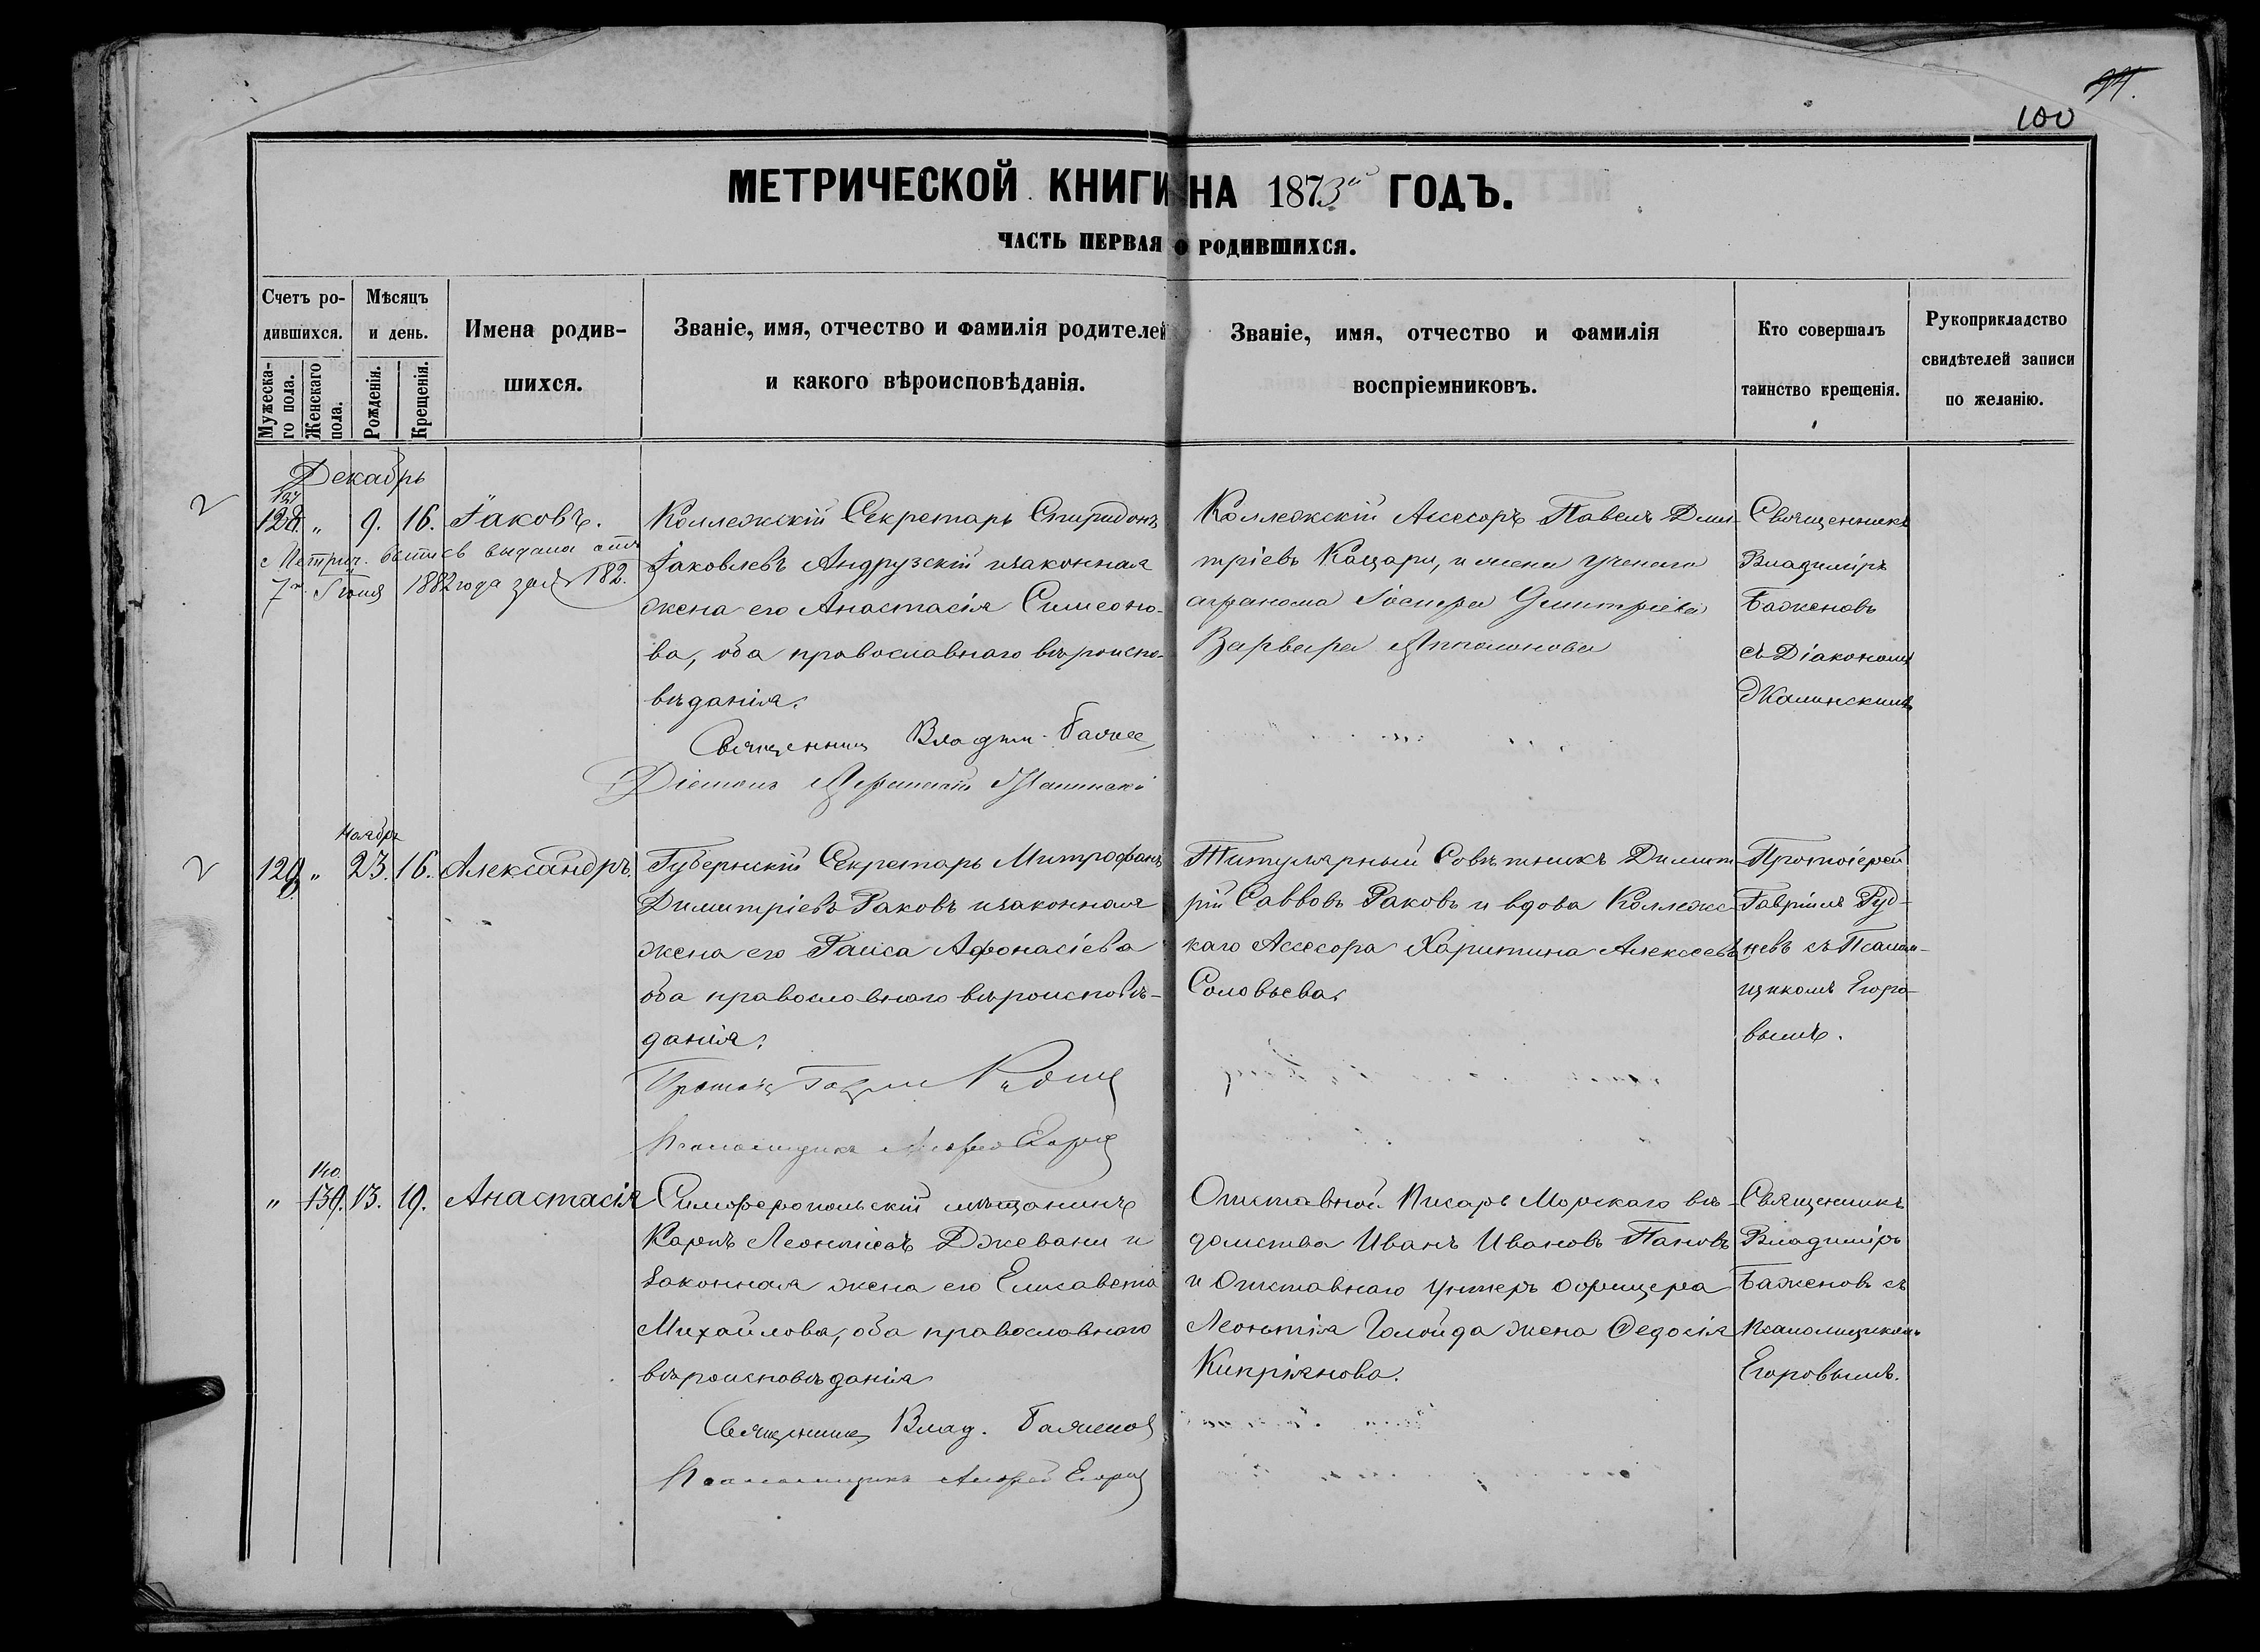 94.
100
МЕТРИЧЕСКОЙ КНИГИ НА 1873й ГОДЪ.
ЧАСТЬ ПЕРВАЯ О РОДИВШИХСЯ.
Счетъ ро-
дившихся.
Мужеска-
го пола.
Женскаго
пола.
Мѣсяцъ
и день.
Рожденія.
Крещенія.
Имена родив-
шихся.
Званіе, имя, отчество и фамилія родителей
и какого вѣроисповѣданія.
Званіе, имя, отчество и фамилія
воспріемниковъ.
Кто совершалъ
таинство крещенія.
Рукоприкладство
свидѣтелей записи
по желанію.
Декабрь
127
128. " 9. 16. Іаковъ.
выдана
7го Іюня 1882 года за № 182.
Коллежскій Секретарь Спиридонъ
Іаковлевъ Андрузскій и законная
жена его Анастасія Симеоно-
ва, оба православнаго вѣроиспо-
вѣданія.
Священникъ Владим. Бажен
Діаконъ Жалинскі
Коллежскій Ассесоръ Павелъ Дми-
тріевъ Кацари, и жена ученаго
агранома Іосифа Димитріева
Варвара Апполонова
Священникъ
Владиміръ
Баженовъ
съ Діакономъ
Жалинскимъ
Ноябрь
129. " 23. 16. Александръ.
Губернскій Секретарь Митрофанъ
Димитріевъ Раковъ и законная
жена его Раиса Афонасіева
оба православнаго вѣроисповѣ-
данія.
Протоіе Гавріи Руднев
Псаломщикъ Андрей Егоров
Титулярный Совѣтникъ Димит-
рій Саввовъ Раковъ и вдова Коллежс-
каго Ассесора Харитина Алексеева
Соловьева.
Протоіерей
Гавріилъ Руд-
невъ съ Псалом-
щикомъ Егоро-
вымъ.
140.
" 139. 13. 19. Анастасія
Симферопольскій мѣщанинъ
Карпъ Леонтіевъ Джевани и
законная жена его Елисавета
Михайлова, оба православнаго
вѣроисповѣданія
Священникъ Влад. Баженов
Псаломщикъ Андрей Егоров
Отставной Писарь Морскаго вѣ-
домства Иванъ Ивановъ Пановъ
и Отставнаго унтеръ офицера
Леонтія Голойда жена Федосія
Кипріянова.
Священникъ
Владиміръ
Баженовъ съ
псаломщикомъ
Егоровымъ.